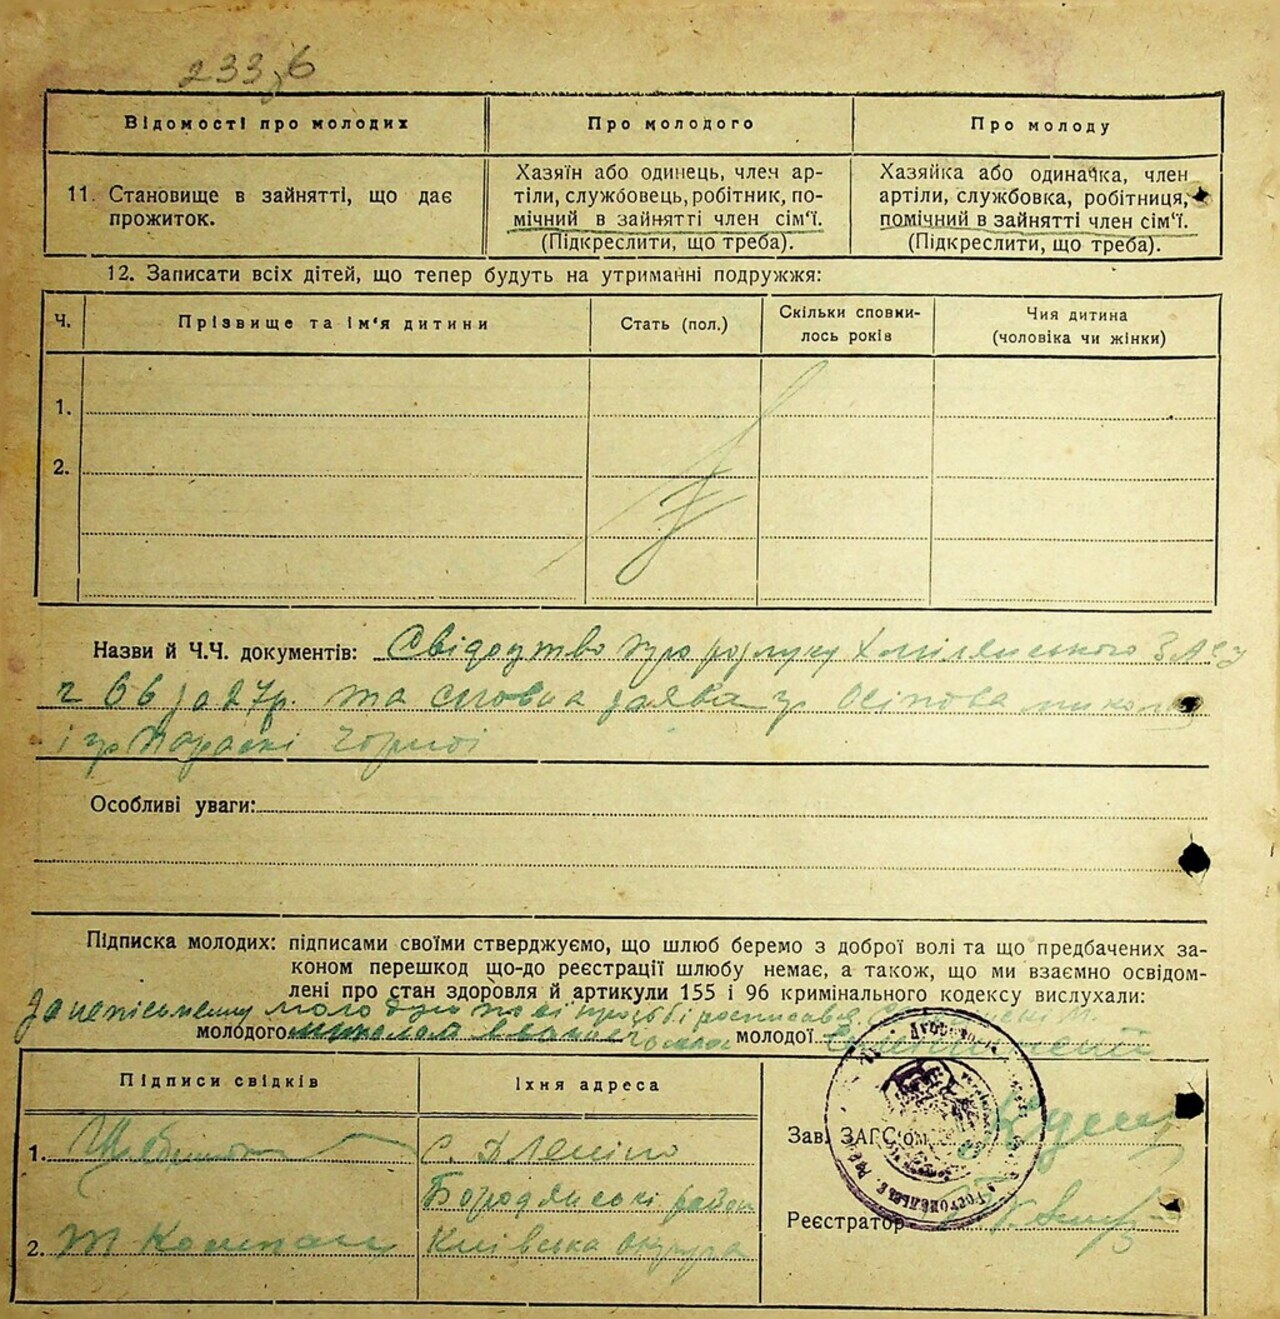 233зб
Відомості про молодих
Про молодого
Про молоду
11. Становище в зайнятті, що дає
прожиток.
Хазяїн або одинець, член ар-
тіли, службовець, робітник, по-
мічний в зайнятті член сім'ї.
(Підкреслити, що треба).
Хазяйка або одиначка, член
артіли, службовка, робітниця,
помічний в зайнятті член сім'ї.
(Підкреслити, що треба).
12. Записати всіх дітей, що тепер будуть на утриманні подружжя:
Ч.
Прізвище та ім'я дитини
Стать (пол.)
Скільки сповни-
лось років
Чия дитина
(чоловіка чи жінки)
1.
2.
Назви й Ч.Ч. документів: Свідоцтво про розлуку
66 за 27р. та словна заява гр Осіпова
і гр Параскі
Особливі уваги:
Підписка молодих: підписами своїми стверджуємо, що шлюб беремо з доброї волі та що предбачених за-
коном перешкод що-до реєстрації шлюбу немає, а також, що ми взаємно освідом-
лені про стан здоровля й артикули 155 і 96 кримінального кодексу вислухали:
За неписьменну молоду по її просьбі росписався
молодого
молодої
Підписи свідків
Їхня адреса
1.
С.
Бородянські район
2.
Київська округа
Зав. ЗАГС'ом
Реєстратор